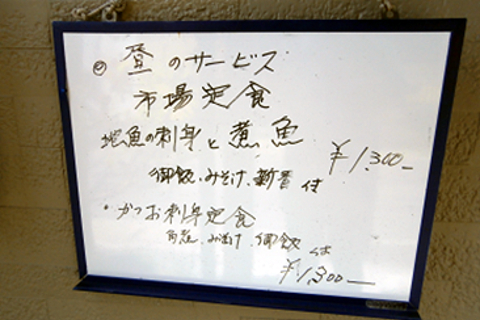 ◎ 昼のサービス
市場定食
地魚の刺身と煮魚
¥1,300-
御飯、みそ汁、新香 付
・かつお刺身定食
角煮、みそ汁、御飯
¥1,300-